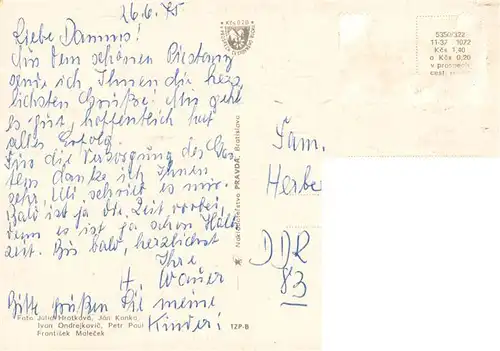 26.6.75
Liebe Damms!
Aus dem schönen Piestany
sende ich Ihnen die herz
lichsten Grüße! Mir geht
es gut, hoffentlich hat
alles Erfolg.
Für die Versorgung der
danke ich Ihnen
sehr, Uli schrieb es mir.
Bald ist ja die Zeit vorbei,
denn es ist ja schon Halb
zeit. Bis bald, herzlichst
Ihre
H. Wauer
Bitte grüßen Sie meine
Kinder!
Foto: Júlia Hratková, Ján Kanka,
Ivan Ondrejkovič, Petr Paul
František Maleček
12P-B
Nakladateľstvo PRAVDA, Bratislava
Kčs 0,20
5350/322
11-37 1072
Kčs 1,40
a Kčs 0,20
v
cest.
Fam.
Herbe
DDR
83